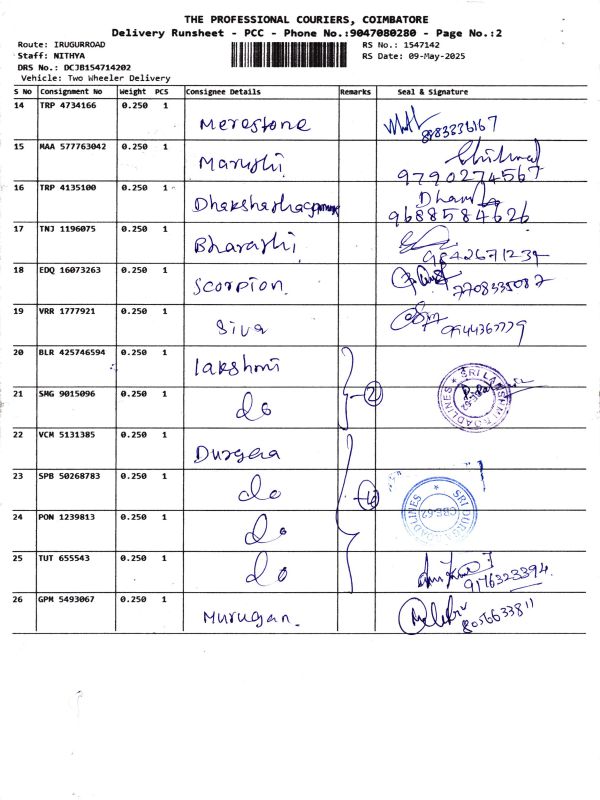 THE PROFESSIONAL COURIERS, COIMBATORE
Delivery Runsheet - PCC - Phone No.:9047080280 - Page No.:2
Route: IRUGURROAD
Staff: NITHYA
DRS No.: DCJB154714202
Vehicle: Two Wheeler Delivery
RS No.: 1547142
RS Date: 09-May-2025
S No Consignment No Weight PCS Consignee Details Remarks Seal & Signature
14 TRP 4734166 0.250 1 Merestone 8883336167
15 MAA 577763042 0.250 1 Maruthi 9790274567
16 TRP 4135100 0.250 1 9688584626
17 TNJ 1196075 0.250 1 Bharathi 9842671234
18 EDQ 16073263 0.250 1 Scorpion. 7708335087
19 VRR 1777921 0.250 1 Siva
20 BLR 425746594 0.250 1 lakshmi
21 SMG 9015096 0.250 1 do 2 SRI LAKSHMI ROADLINES
22 VCM 5131385 0.250 1 Durgea
23 SPB 50268783 0.250 1 do SRI DURGA ROADLINES CBE-62
24 PON 1239813 0.250 1 do
25 TUT 655543 0.250 1 do 9176323394
26 GPM 5493067 0.250 1 Murugan. 8056633811